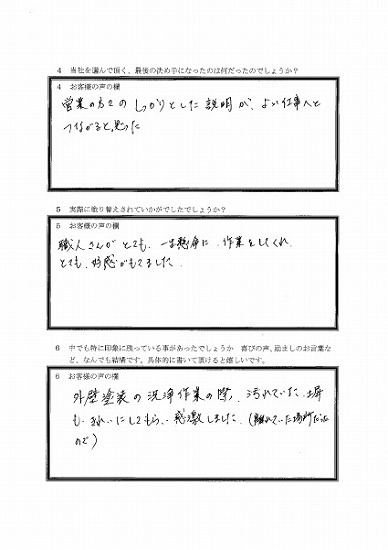 4 当社を選んで頂く、最後の決め手になったのは何だったのでしょうか？
4 お客様の声の欄
営業の方の しっかりとした 説明が、よい仕事へと
つながると思った
5 実際に塗り替えされていかがでしたでしょうか？
5 お客様の声の欄
職人さんが とても、一生懸命に、作業をしてくれ
とても、好感がもてました.
6 中でも特に印象に残っている事があったでしょうか 喜びの声、励ましのお言葉な
ど、なんでも結構です。具体的に書いて頂けると嬉しいです。
6 お客様の声の欄
外壁塗装の洗浄作業の際、汚れていた塀
も きれいにしてもらい 感激しました.(離れていた場所だった
ので)